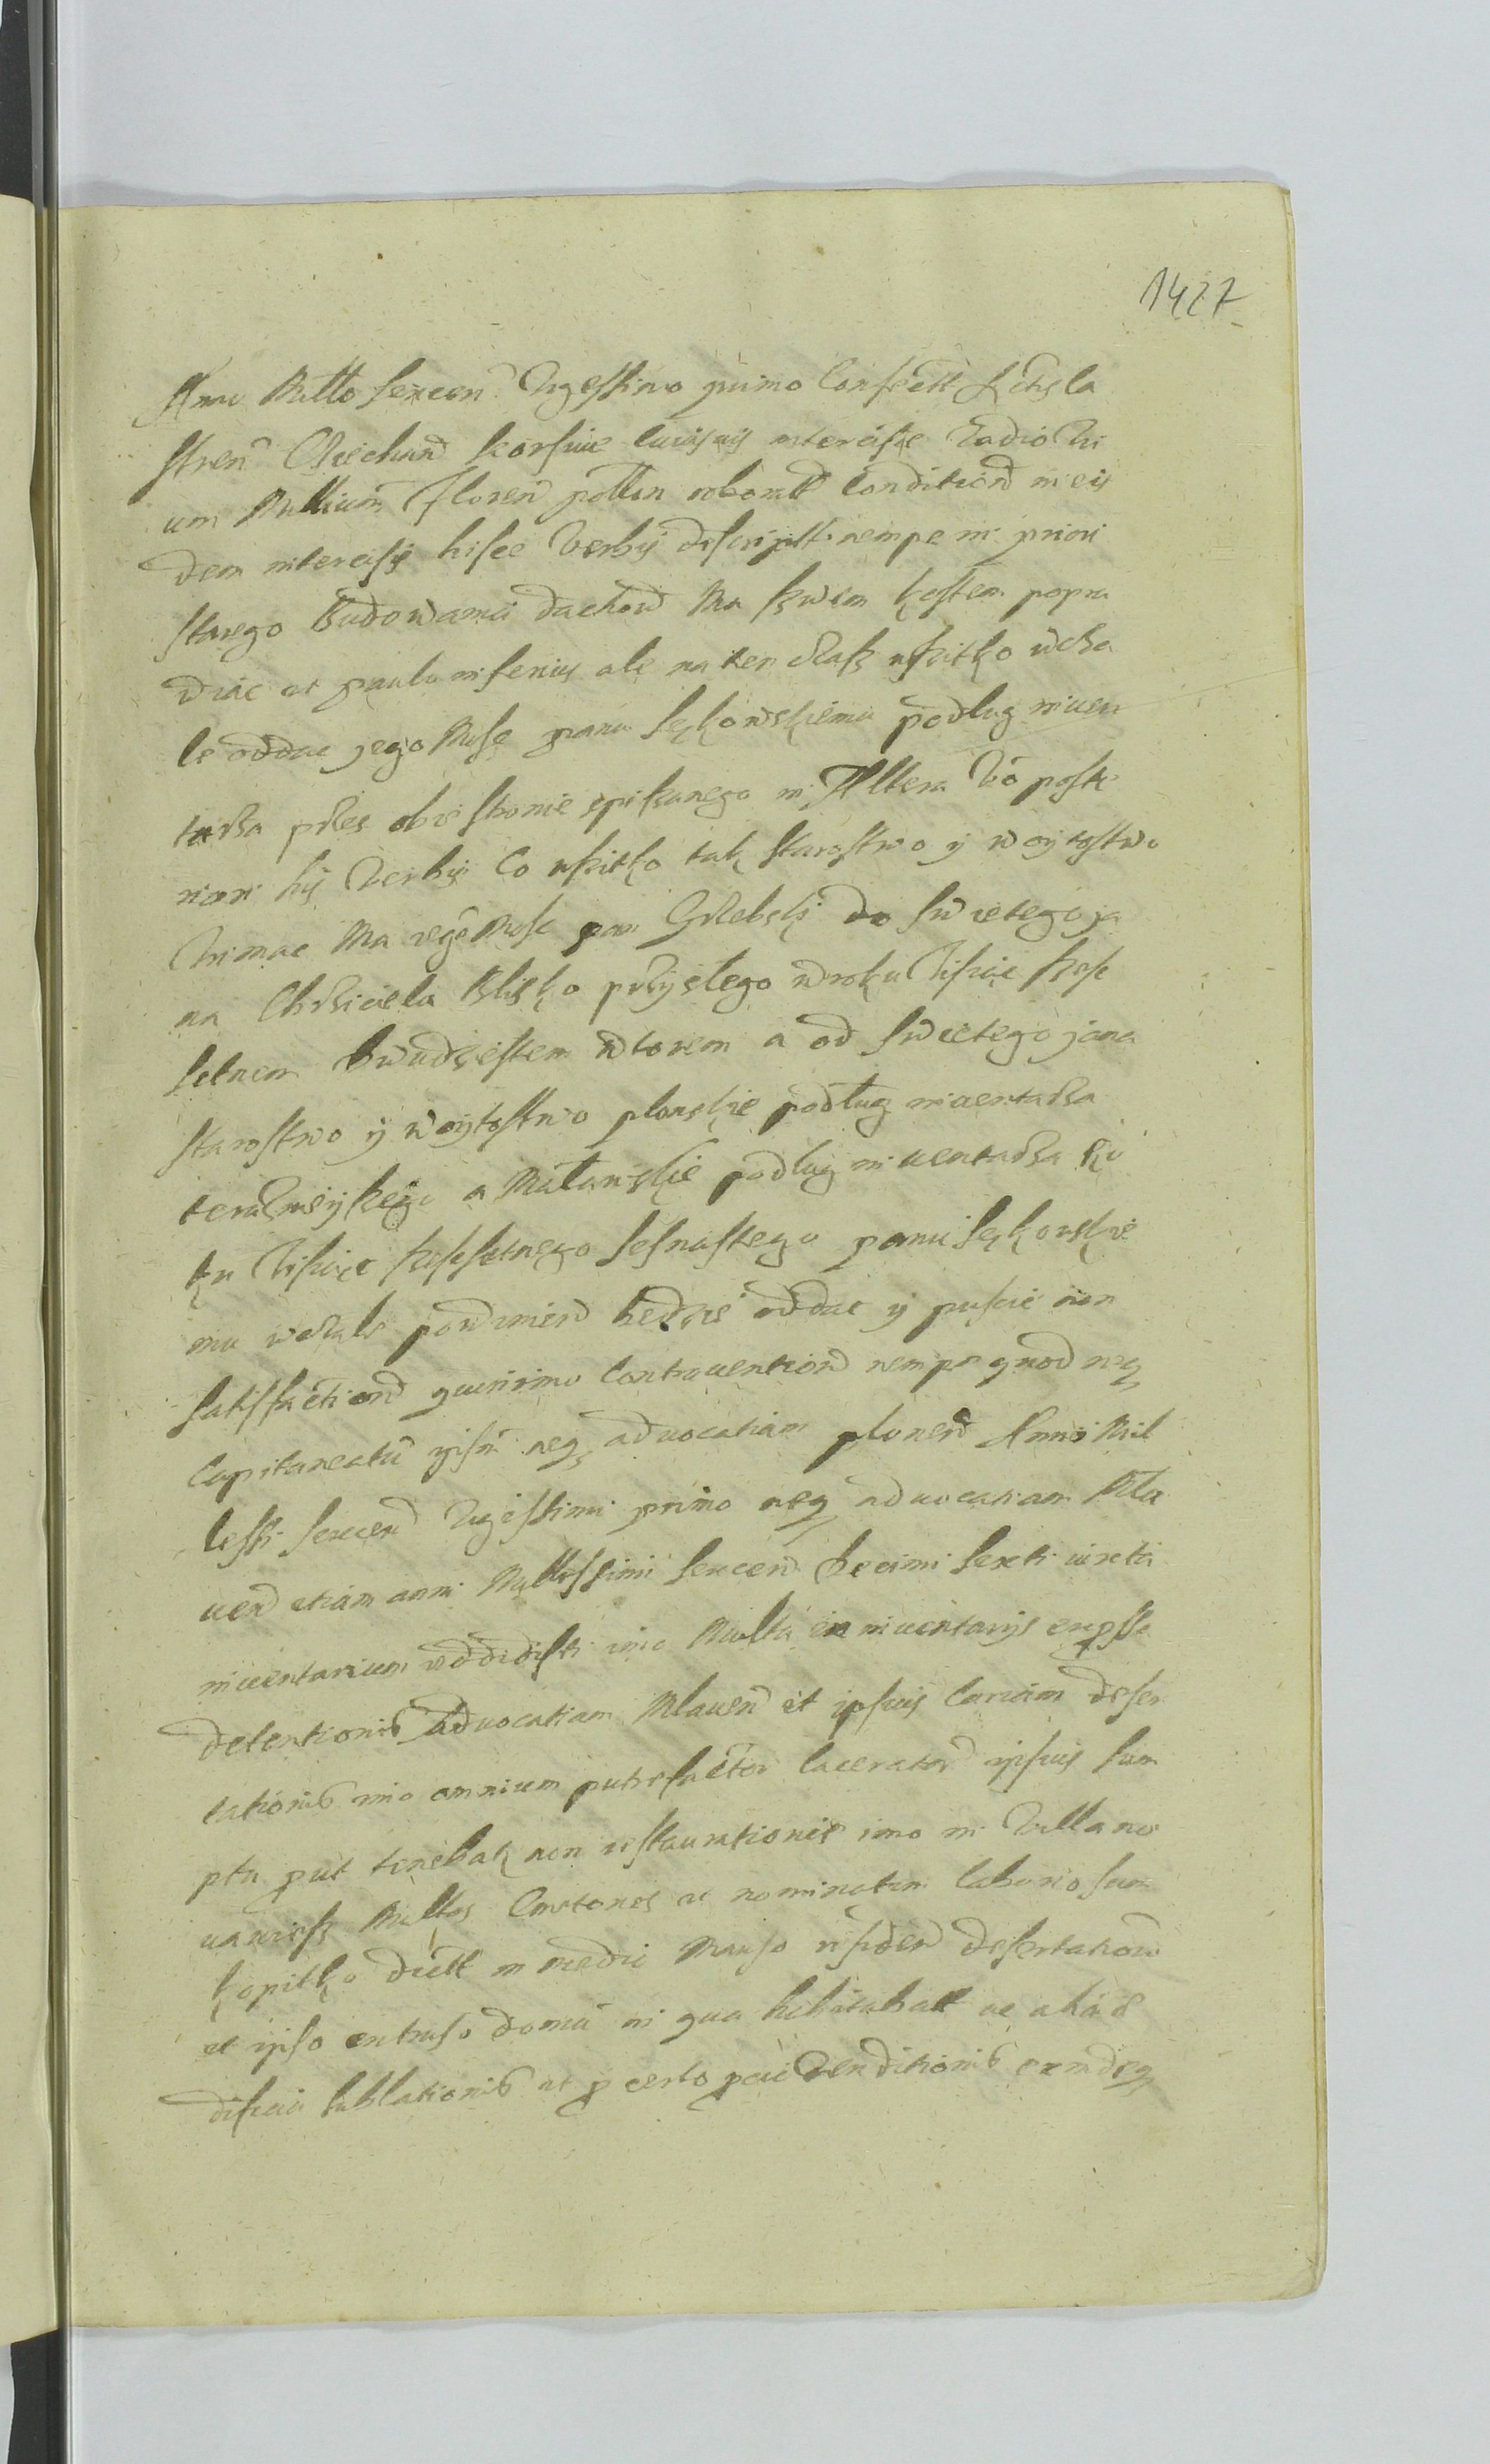 1427
Anno Millo Sexcen Vigessimo primo Confectt
stren Ciechan seorsive cuiusvis intercisse Vadio tri
um Millium Floren pollon roboratt Condition in eis
dem intercisis hisce Verbis descriptt nempe in priori
starego Budowania dachow Ma swem kostem popra
wiac et paulo inferius ale na ten czass wssitko wcza
le oddac jego Mosc panu Sękowskiemu podlug inven
tarza przes obie stronie spisanego in Altera Vo poste
riori his Verbis Co wssitko tak starostwo y woytostwo
trimac Ma iego Mosc pan Grzebski do swietego ja
na Chrziciela blisko przyslego wroku Tisiąc szesc
setnem dwudziestem wtorem a od swietego jana
starostwo y woytostwo plonskie podlug inventarza
teraznieyssego a Mlawskie podlug inventarza ro
ku Tisiąc szescsetnego sesnastego panu Sękowskie
mu wczale powinien bedzie oddac y puscic non
satisfaction quinimo Contravention nempe quod neq
Capitaneatu ipsm neq advocatiam plonen Anni Mil
lessi sexcen Vigessimi primo neq advocatiam Mla
ven etiam anni Millessimi sexcen decimi sexti iuxta
inventarium reddidisti imo Multa in inventarys expsse
detentionis advocatiam Mlaven et ipsius Curiam deser
tationis imo omnium putrefactor lacerator ipsius sum
ptu put tenebat non restaurationis imo in Villa
Multos Cmetones et nominatim laboriosum
kopitko dictt in medio Manso residen desertation
et ipso extruso domu in qua habitabatt ac alia
dificia sublationis et p certo pcio venditionis exindeq